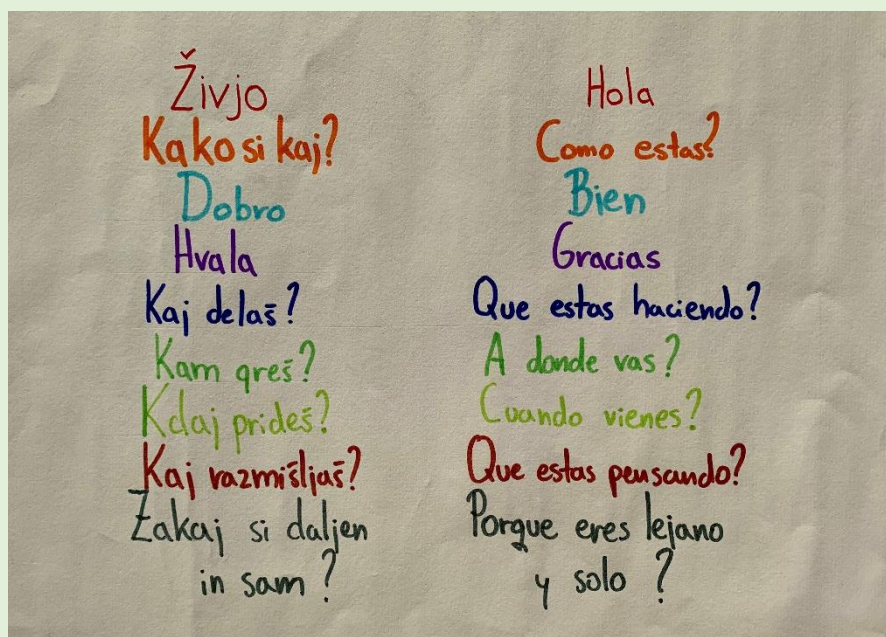 Živjo
Kako si kaj?
Dobro
Hvala
Kaj delaš?
Kam greš?
Kdaj prideš?
Kaj razmišljaš?
Zakaj si daljen
in sam?
Hola
Como estas?
Bien
Gracias
Que estas haciendo?
A donde vas?
Cuando vienes?
Que estas pensando?
Porque eres lejano
y solo?